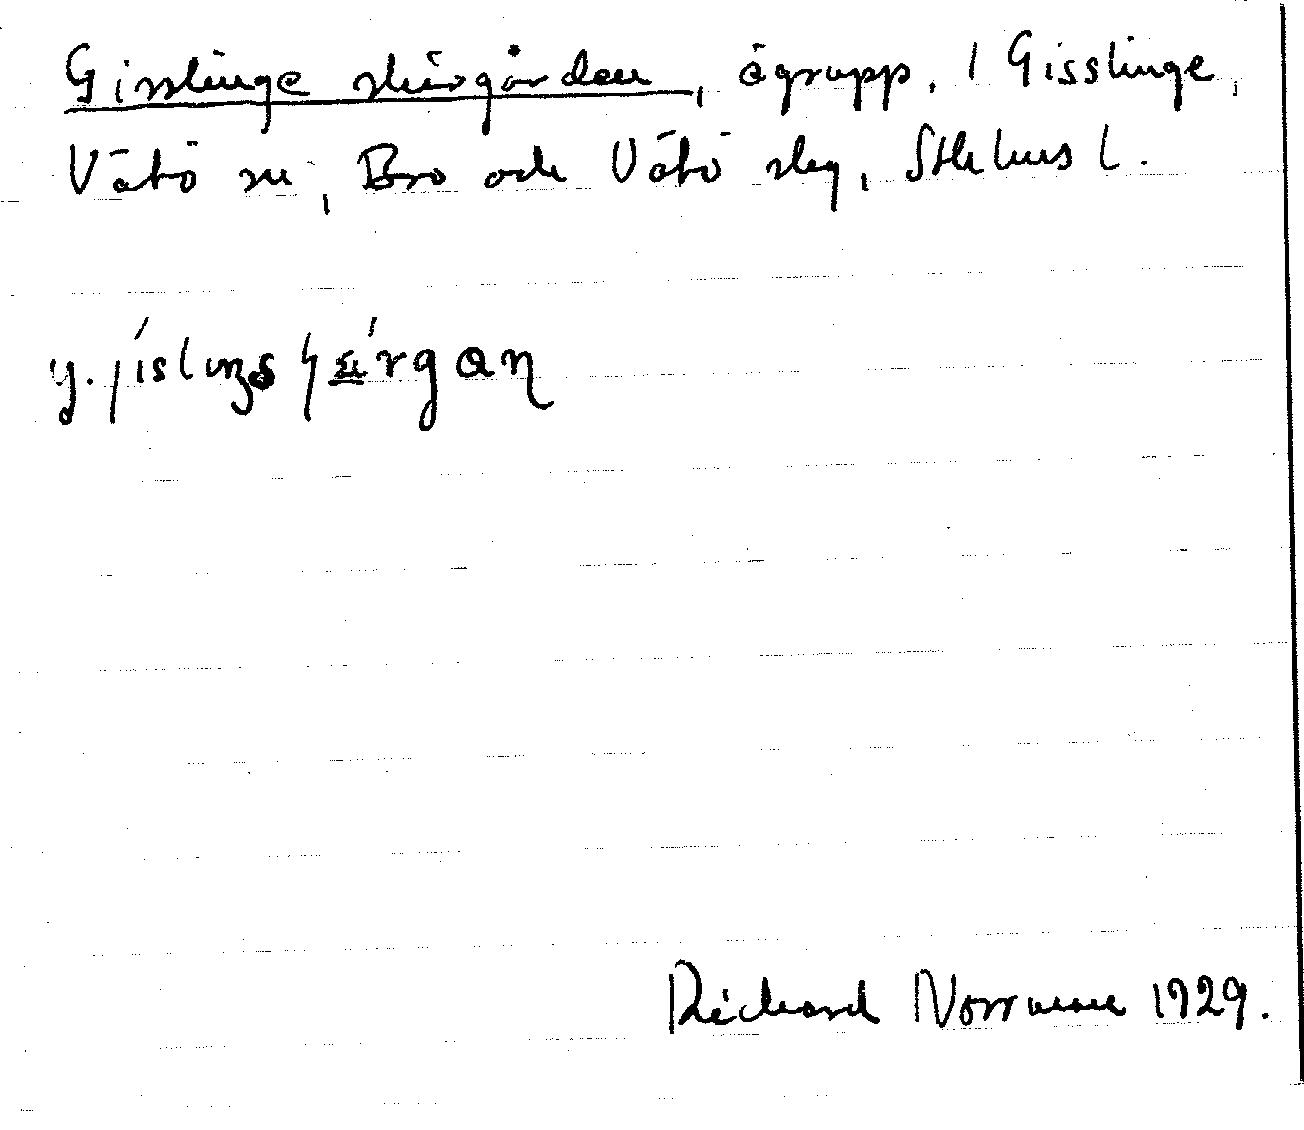 Gisslinge skärgården, ögrupp, / Gisslinge,
Vätö sn, Bro och Vätö skg, Sthlms l.
y.
Richard Norrman 1929.